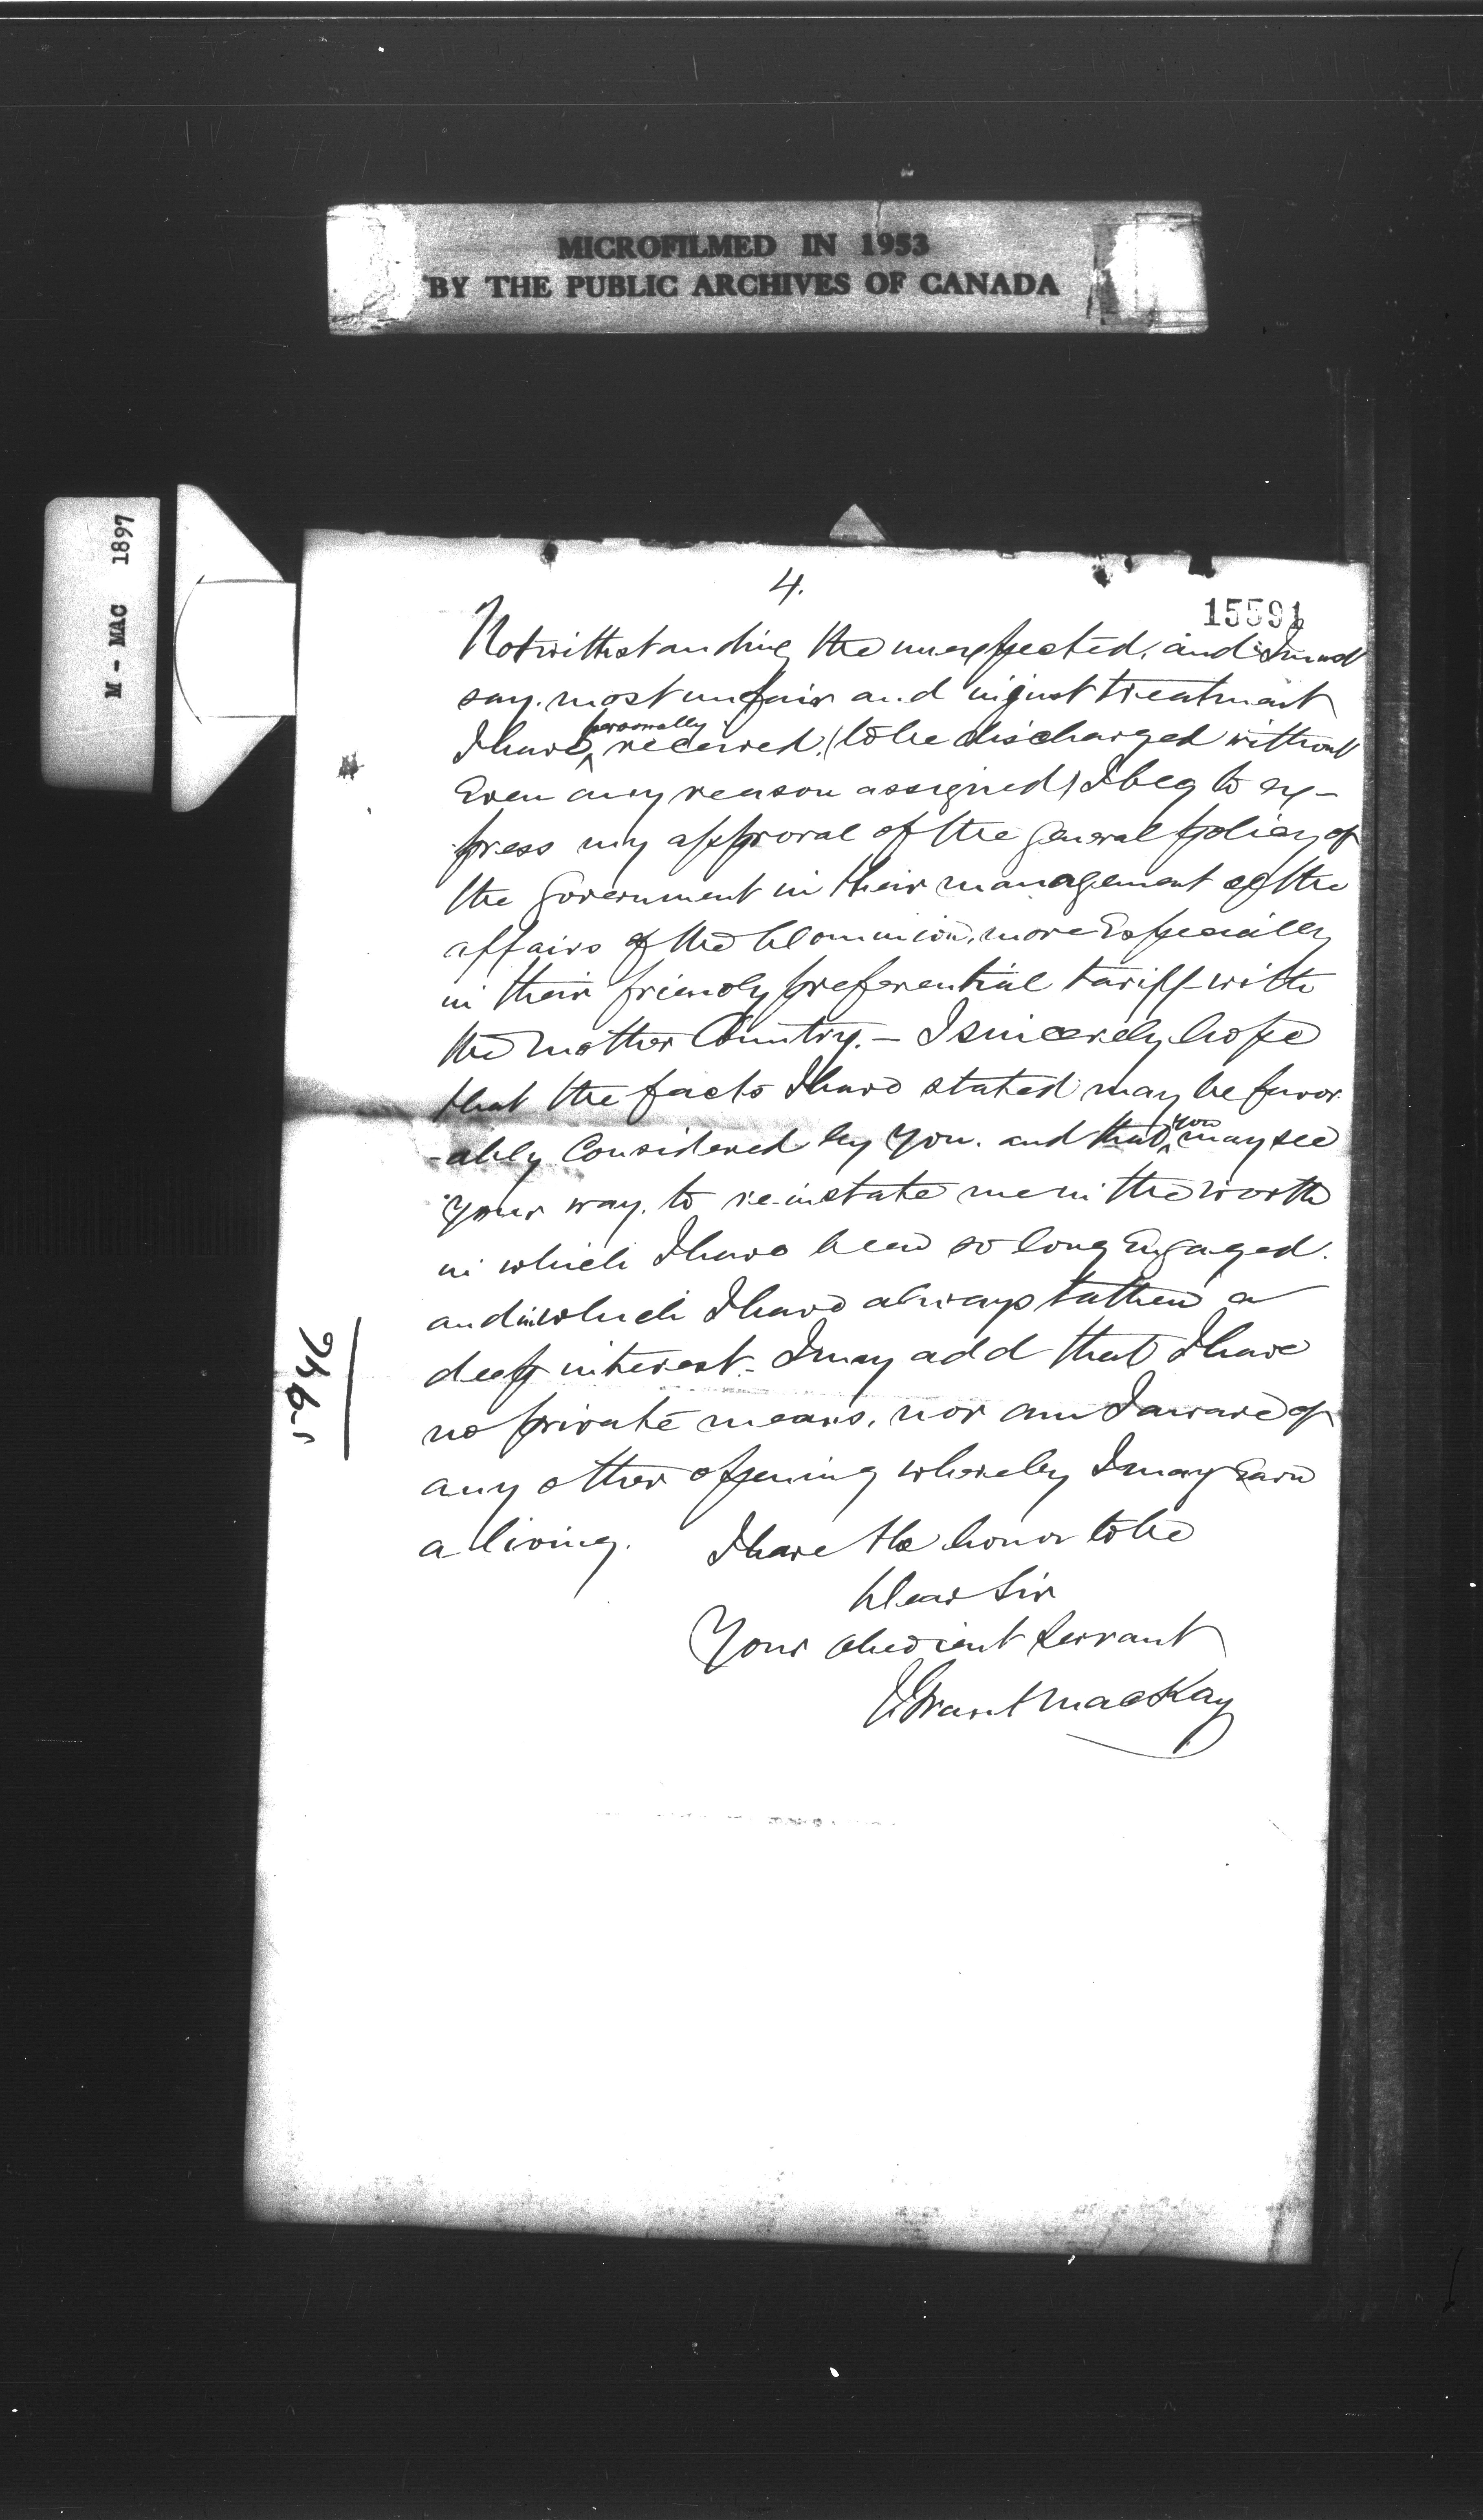 MICROFILMED IN 1953
BY THE PUBLIC ARCHIVES OF CANADA
M - MAC 1897
4.
15591
Notwithstanding the unexpected, and I must
say, most unfair and unjust treatment
I have personally received, (to be discharged without
Even any reason assigned) I beg to ex-
press my approval of the general policy of
the Government in their management of the
affairs of the Dominion, more Especially
in their friendly preferential tariff with
the Mother Country. - I sincerely hope
that the facts I have stated may be favor-
-ably Considered by You. and that you may see
your way, to re-instate me in the work
in which I have been so long Engaged.
and in which I have always taken a
deep interest - I may add that I have
no private means, nor am I aware of
any other opening whereby I may Earn
a living. I have the honor to be
Dear Sir
Your obedient Servant
J Grant MacKay